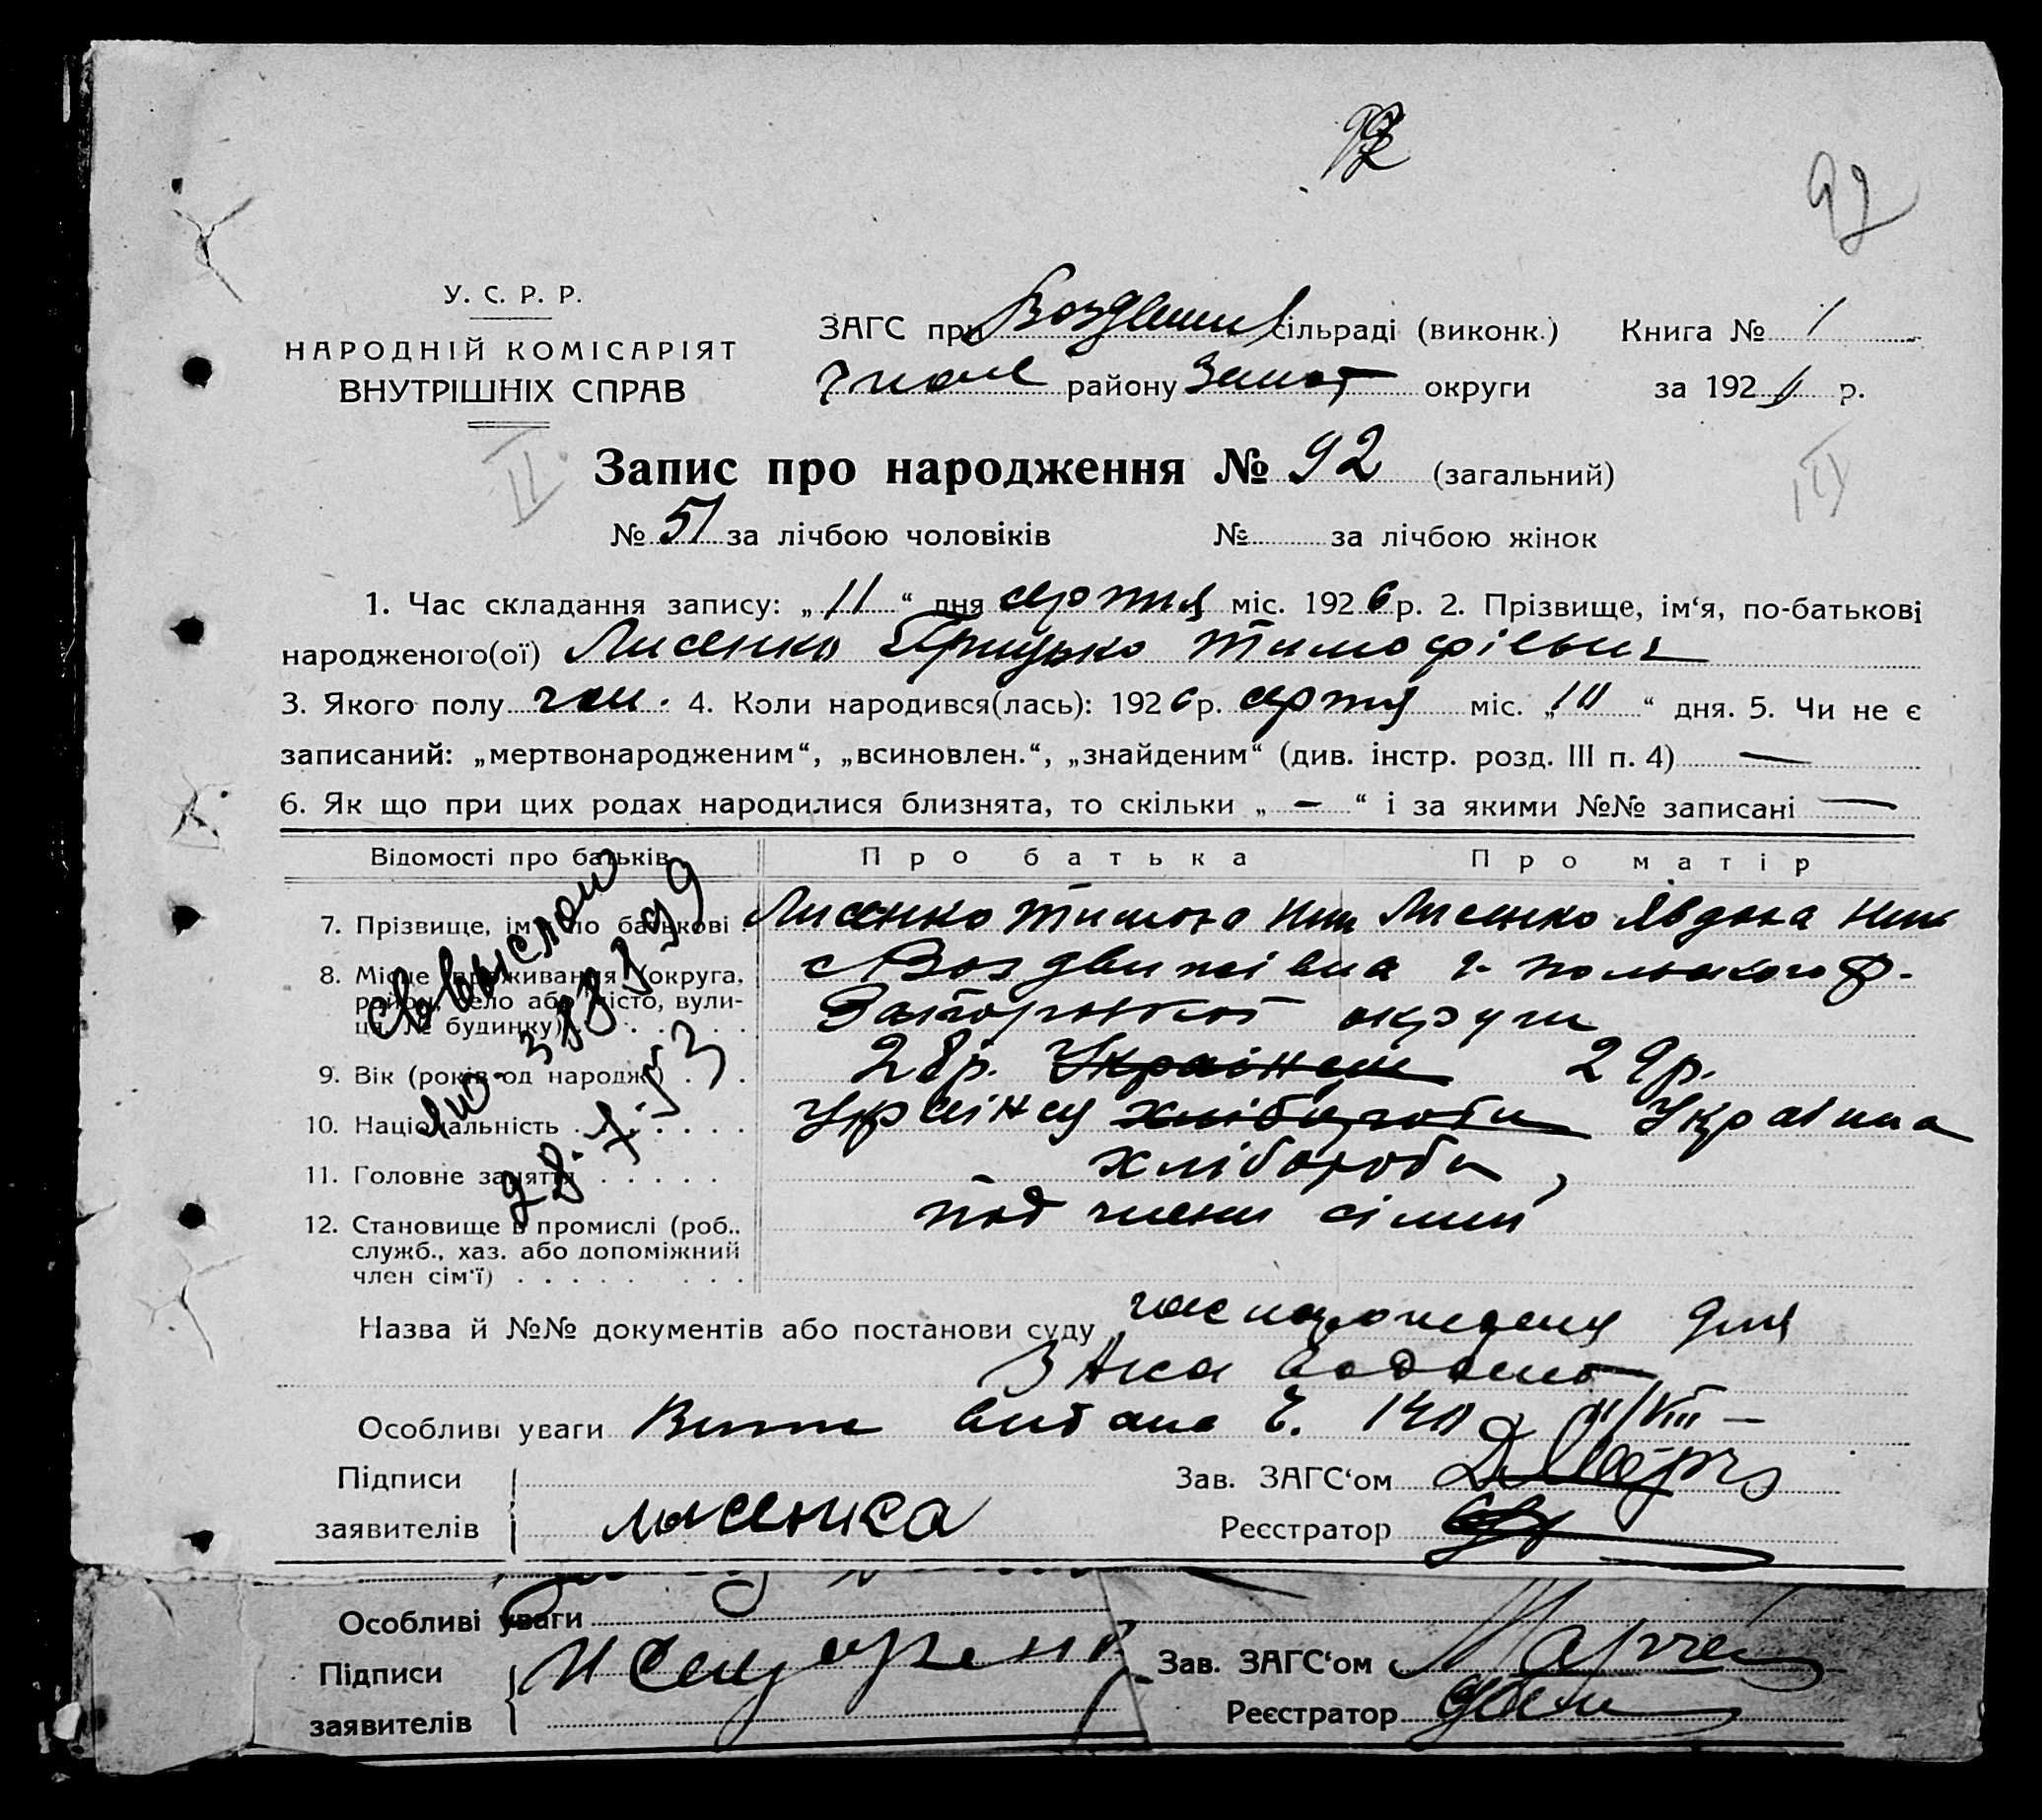 92
У. С. Р. Р.
НАРОДНІЙ КОМІСАРІЯТ
ВНУТРІШНІХ СПРАВ
ЗАГС при Воздвиж сільраді (виконк.) Книга № 1
району Запор округи за 192 р.
Запис про народження № 92 (загальний)
№ 51 за лічбою чоловіків № за лічбою жінок
1. Час складання запису: „11“ дня серпня міс. 1926 р. 2. Прізвище, ім‘я, по-батькові
народженого(ої) Лисенко Грицько Тимофієвич
3. Якого полу чол. 4. Коли народився(лась): 1926 р. серпня міс. „10“ дня. 5. Чи не є
записаний: „мертвонародженим“, „всиновлен.“, „знайденим“ (див. інстр. розд. III п. 4) —
6. Як що при цих родах народилися близнята, то скільки „ — “ і за якими №№ записані —
Відомості про батьків Про батька Про матір
7. Прізвище, ім по батькові Лисенко Лисенко Явдоха
8. Місце проживання (округа, с Воздвижівка Г. Польского р.
район, село або місто, вули-
ця № будинку) Запорожкої округи
9. Вік (років од народж.) 28 р. Українец 29 р.
10. Національність Українец хлібороби Українка
11. Головне заняття хлібороби
12. Становище в промислі (роб., под члени сімии
служб., хаз. або допоміжний
член сім‘ї)
св. выслано
ЯЮ 388199
28.7.53
Назва й №№ документів або постанови суду
Особливі уваги Випис видана Ч. 140 11/VIII —
Підписи Зав. ЗАГС‘ом
заявителів лисенка Реєстратор
Особливі уваги
Підписи Зав. ЗАГС‘ом
заявителів Реєстратор